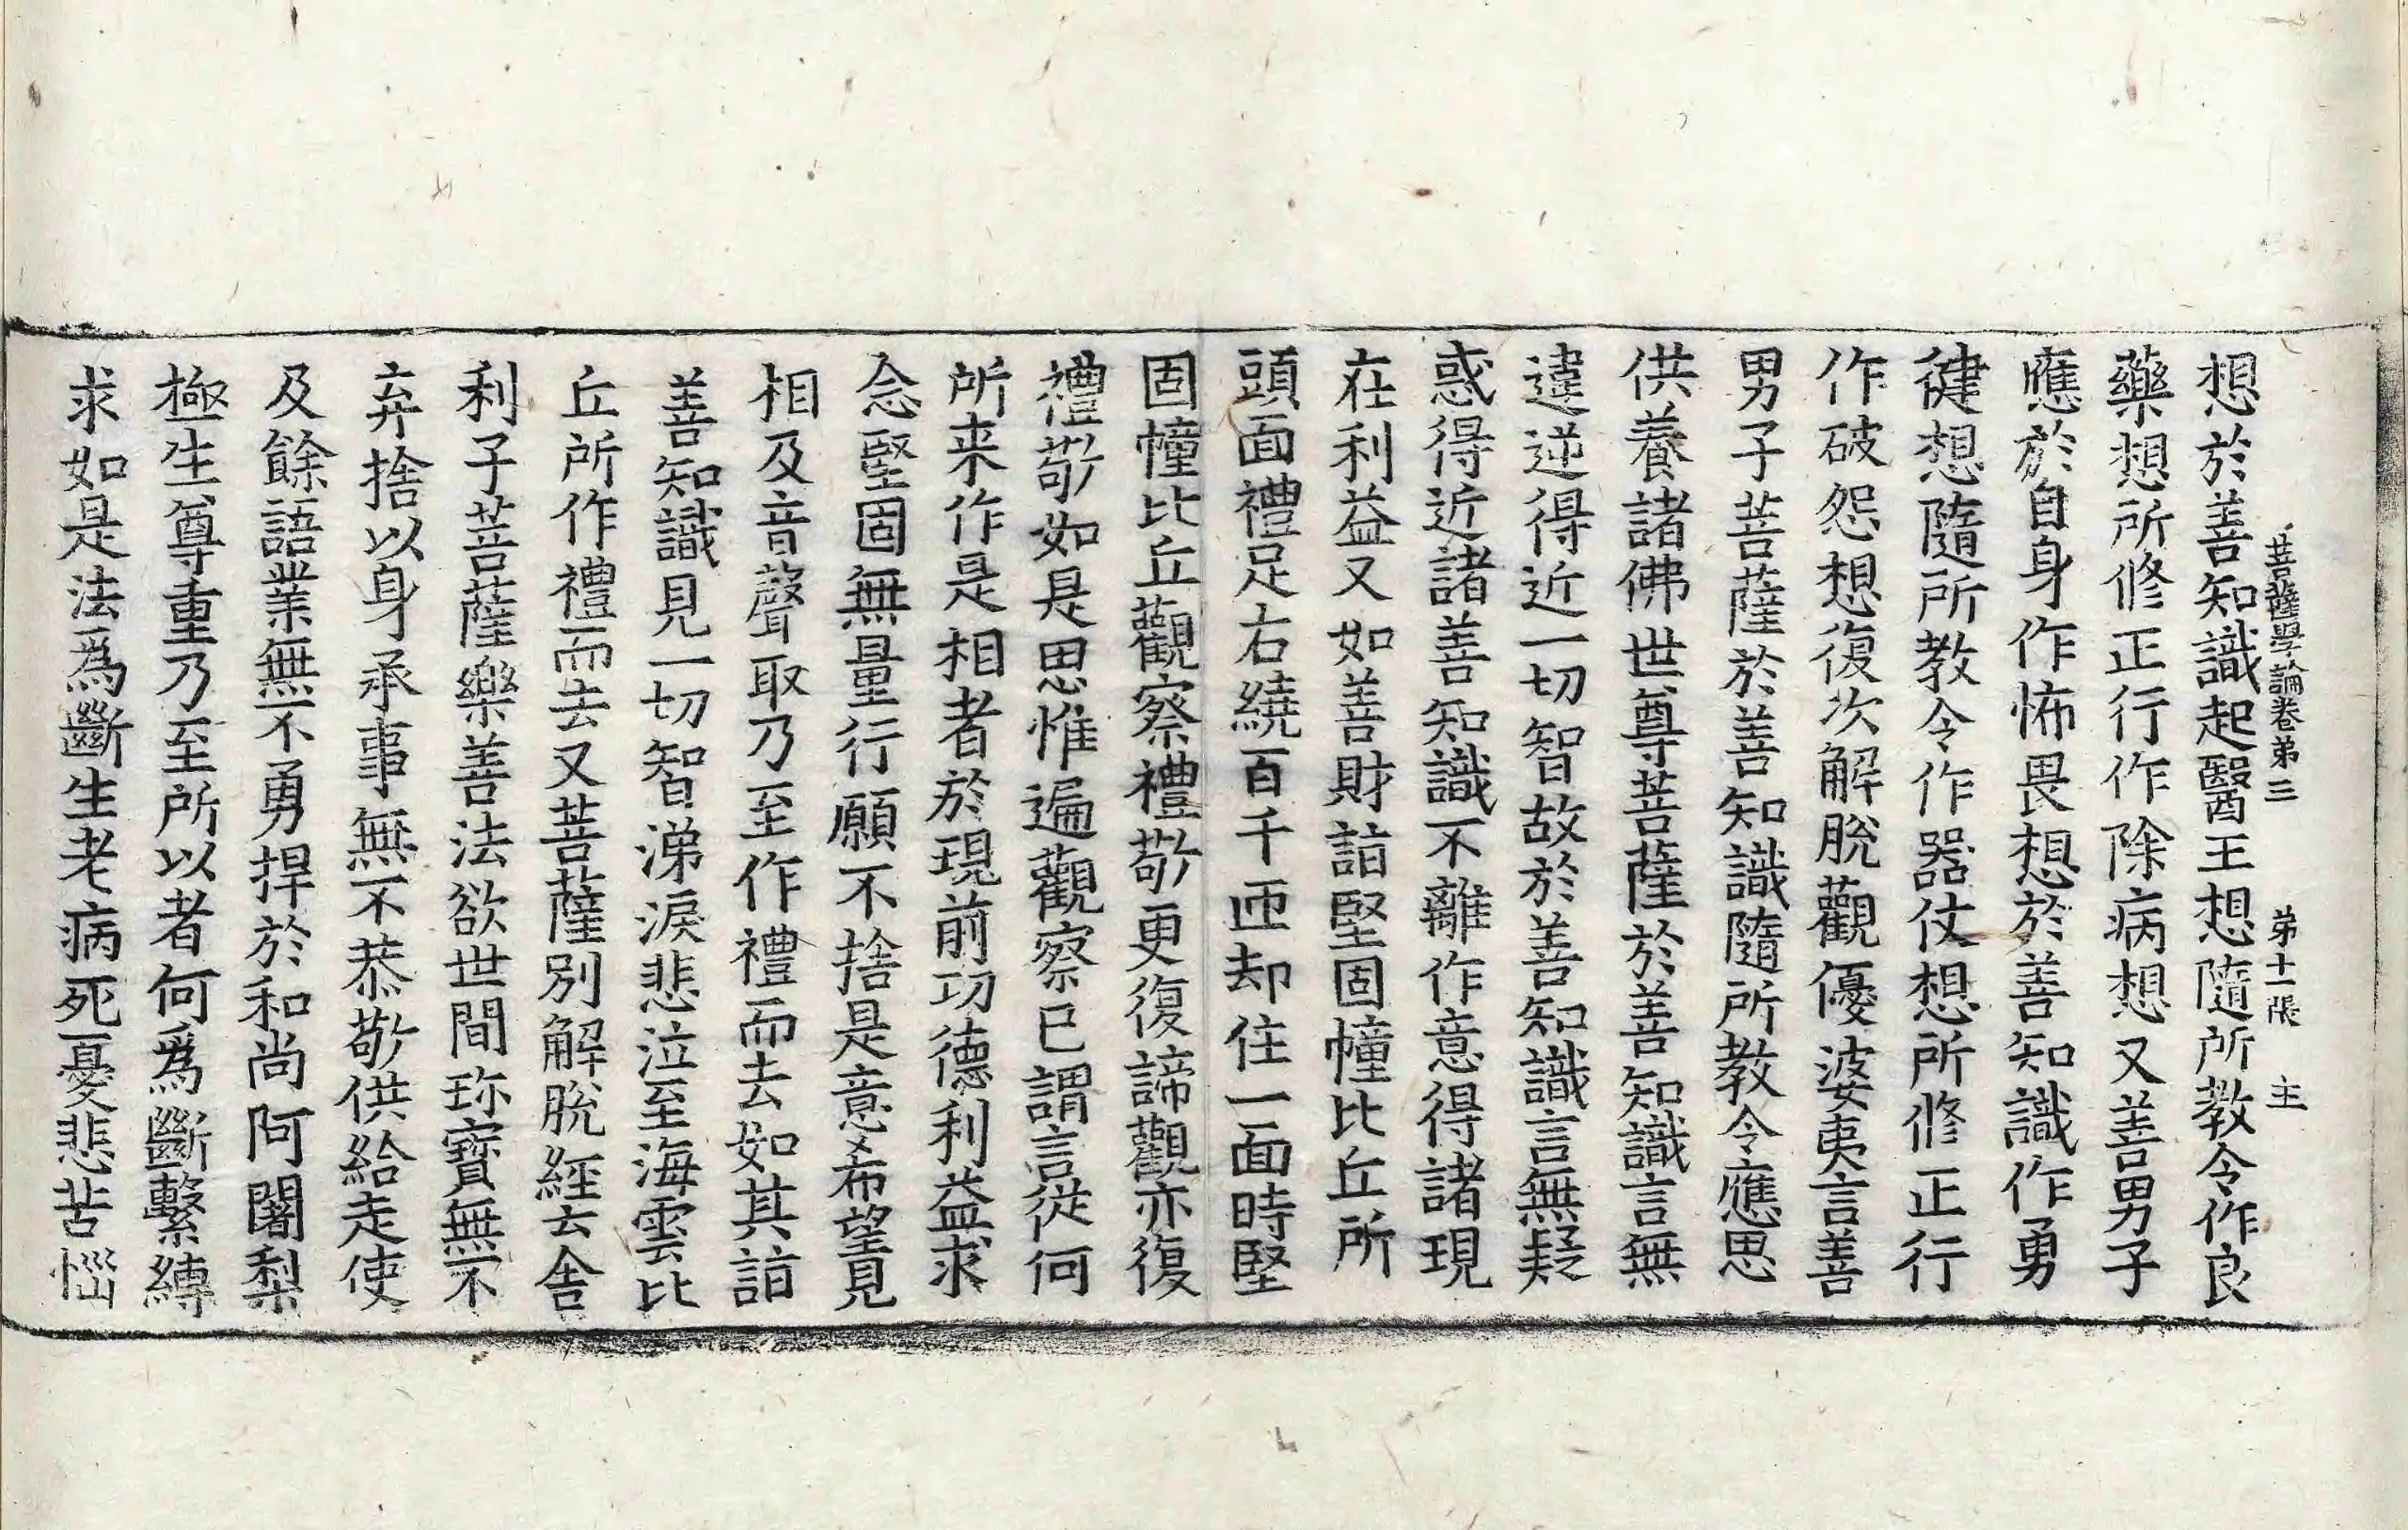 菩薩學論卷第三 第十一張 主
想於善知識起醫王想隨所教令作良
藥想所修正行作除病想又善男子
應於自身作怖畏想於善知識作勇
健想隨所教令作器仗想所修正行
作破怨想復次解脫觀優婆夷言善
男子菩薩於善知識隨所教令應思
供養諸佛世尊菩薩於善知識言無
違逆得近一切智故於善知識言無疑
惑得近諸善知識不離作意得諸現
在利益又如善財詣堅固幢比丘所
頭面禮足右繞百千匝却住一面時堅
固幢比丘觀察禮敬更復諦觀亦復
禮敬如是思惟遍觀察已謂言從何
所来作是相者於現前功德利益求
念堅固無量行願不捨是意希望見
相及音聲取乃至作禮而去如其詣
善知識見一切智涕淚悲泣至海雲比
丘所作禮而去又菩薩別解脫經云舍
利子菩薩樂善法欲世間珎寶無不
弃捨以身承事無不恭敬供給走使
及餘語業無不勇捍於和尚阿闍梨
極生尊重乃至所以者何爲斷繫縛
求如是法爲斷生老病死憂悲苦惱